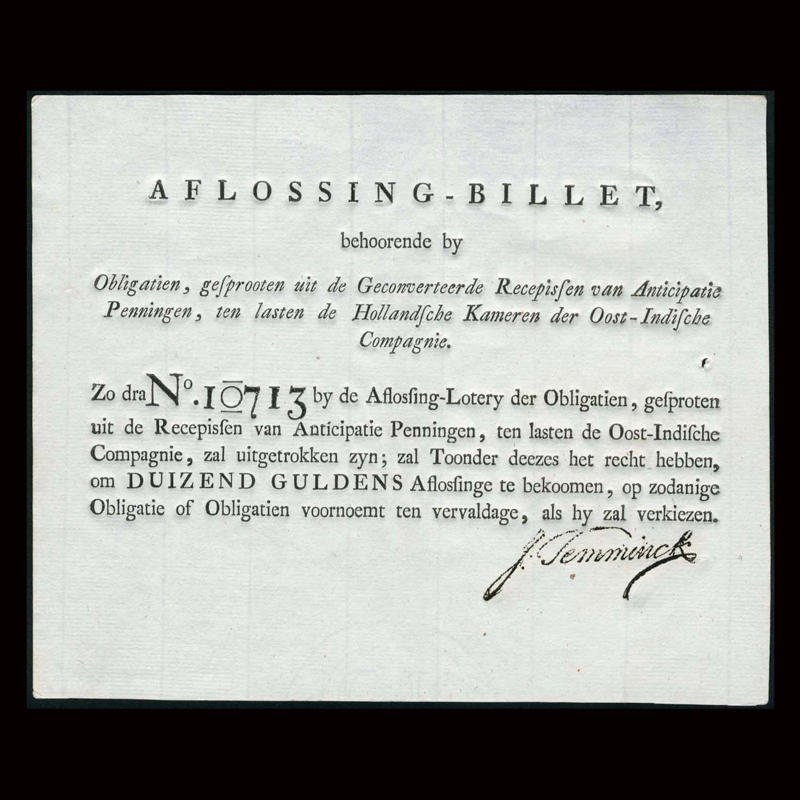 AFLOSSING-BILLET,
behoorende by
Obligatien, geſprooten uit de Geconverteerde Recepiſſen van Anticipatie
Penningen, ten lasten de Hollandſche Kameren der Oost-Indiſche
Compagnie.
Zo dra Nº. 10713 by de Afloſſing-Lotery der Obligatien, geſproten
uit de Recepiſſen van Anticipatie Penningen, ten lasten de Oost-Indiſche
Compagnie, zal uitgetrokken zyn; zal Toonder deezes het recht hebben,
om DUIZEND GULDENS Afloſſinge te bekoomen, op zodanige
Obligatie of Obligatien voornoemt ten vervaldage, als hy zal verkiezen.
J. Temminck